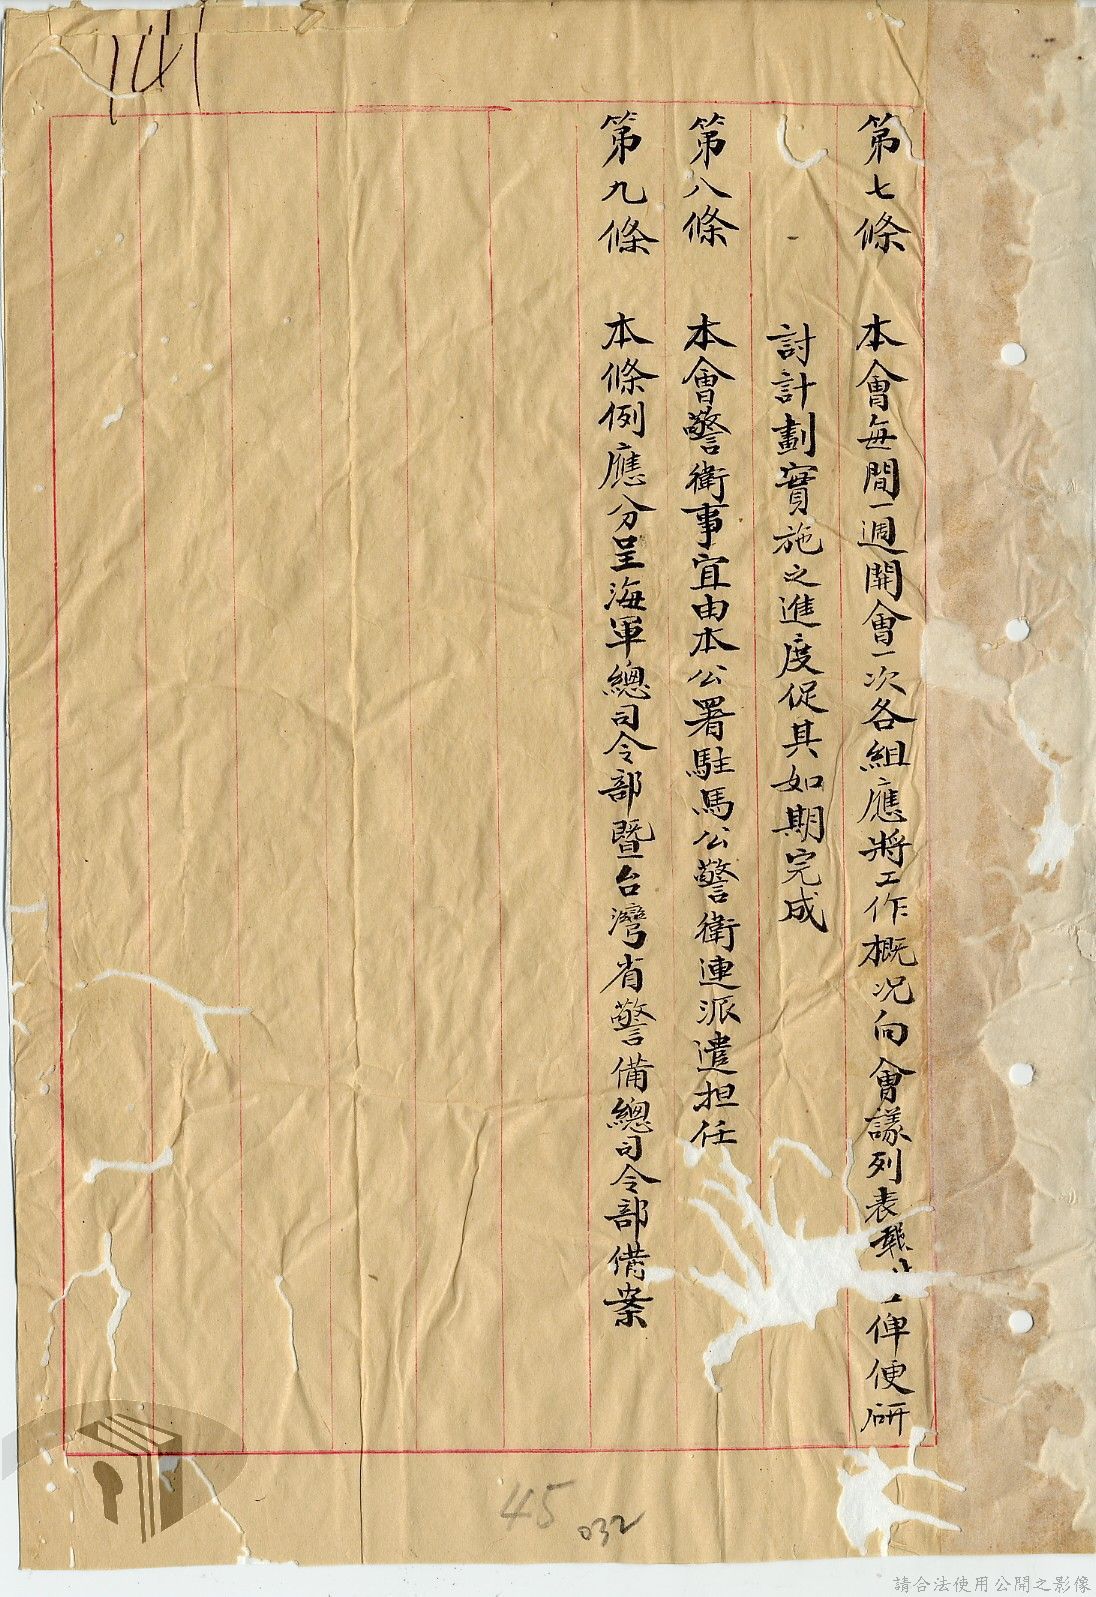 第七條　本會每間一週開會一次各組應將工作概况向會議列表報　　俾便研
討計劃實施之進度促其如期完成
第八條　本會警衛事宜由本公署駐馬公警衛連派遣担任
第九條　本條例應分呈海軍總司令部暨台灣省警備總司令部備案
45
032
請合法使用公開之影像